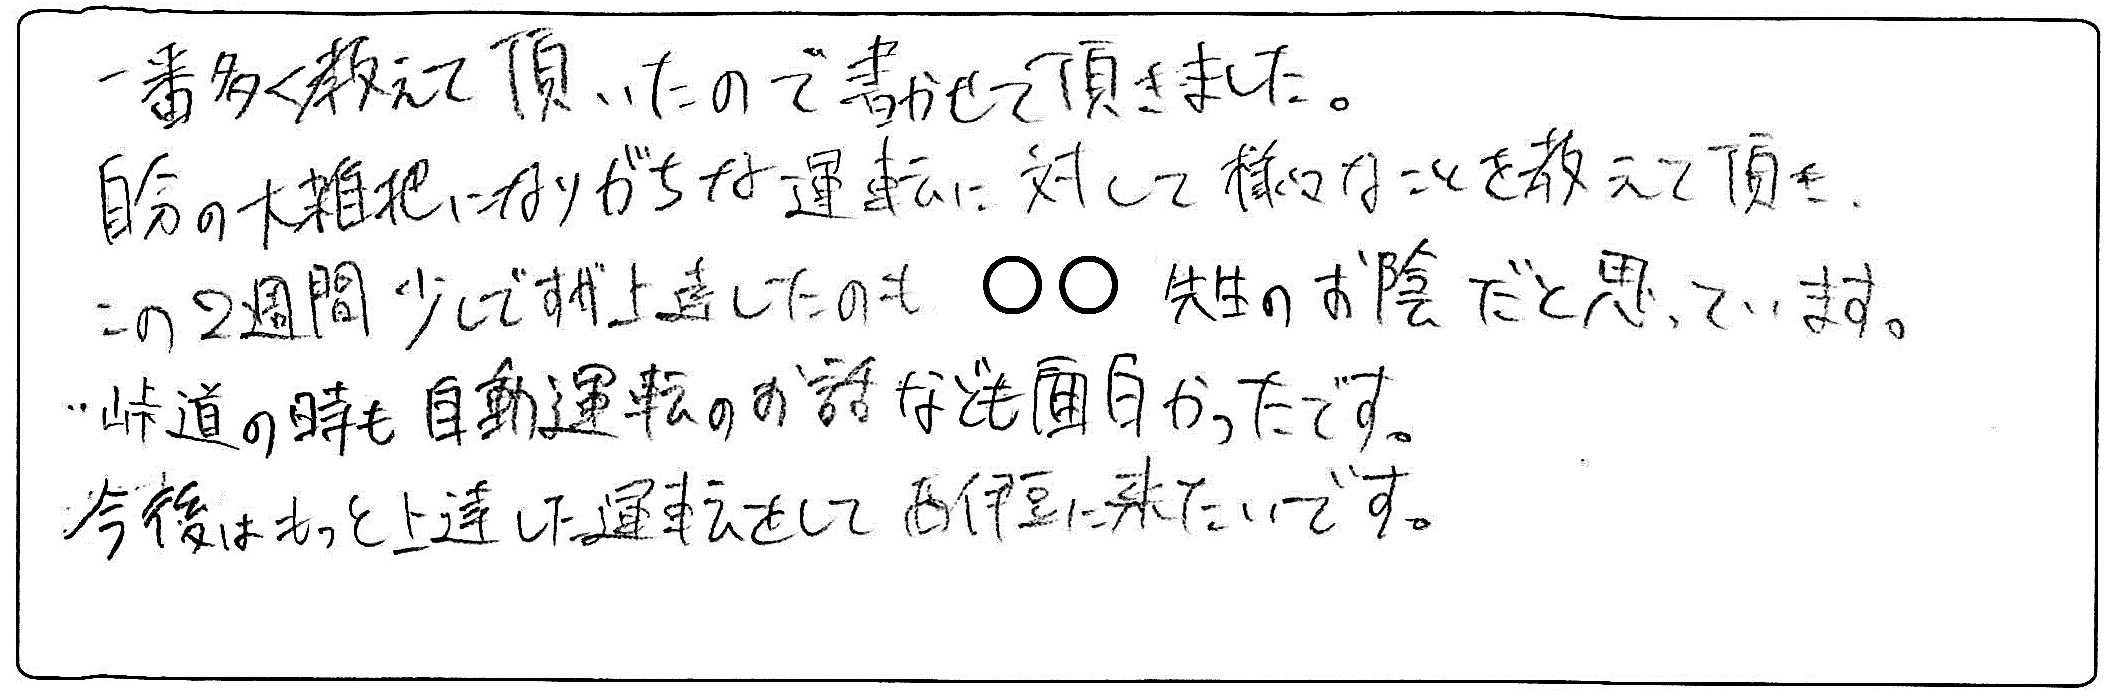 一番多く教えて頂いたので書かせて頂きました。
自分の大雑把になりがちな運転に対して様々なことを教えて頂き、
この2週間少しですが上達したのも ○○ 先生のお陰だと思っています。
峠道の時も自動運転のお話なども面白かったです。
今後はもっと上達した運転をして西伊豆に来たいです。